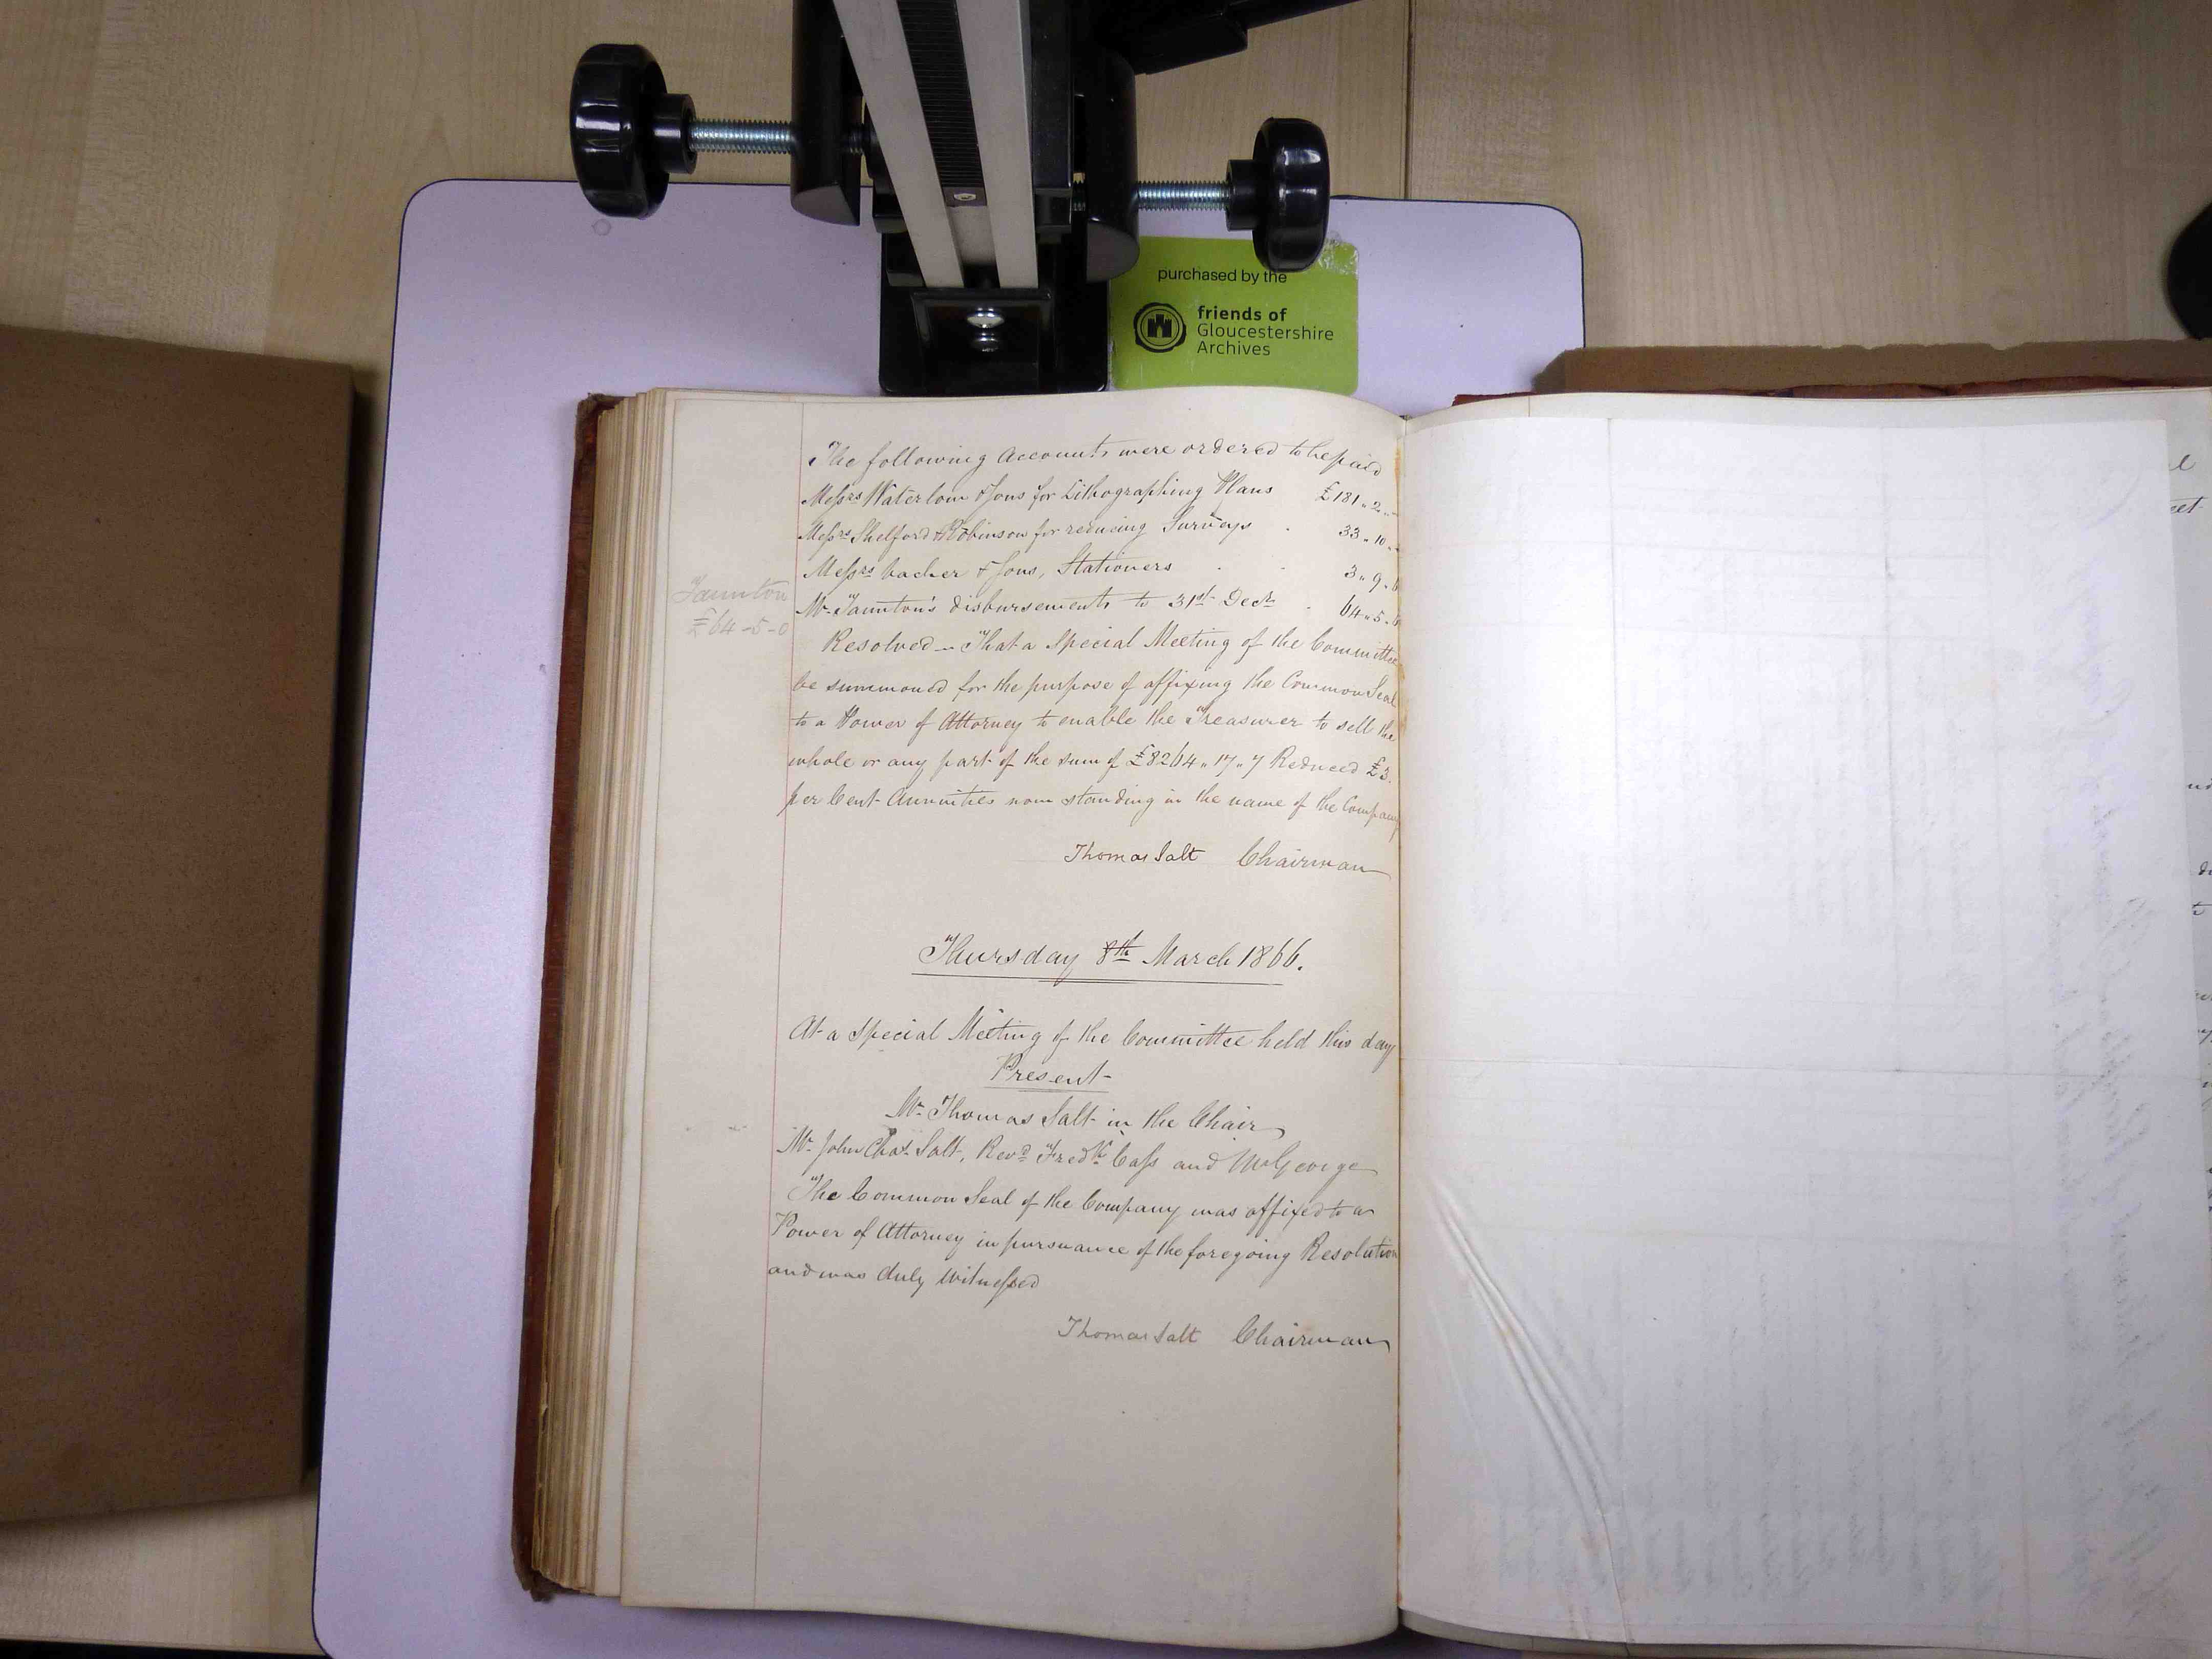 purchased by the
friends of
Gloucestershire
Archives
The following Accounts were ordered to be paid
Messrs Waterlow & Sons for Lithographing Plans £181 " 2 " -
Messrs Shelford & Robinson for reducing Surveys 33 " 10 " -
Messrs Vacher & Sons, Stationers 3 " 9 " 6
Taunton
£64-5-0
Mr Taunton's disbursements to 31st Decr 64 " 5 "
Resolved - That a Special Meeting of the Committee
be summoned for the purpose of affixing the Common Seal
to a Power of Attorney to enable the Treasurer to sell the
whole or any part of the sum of £8264 " 17 " 7 Reduced £3.
per Cent Annuities now standing in the name of the Company
Thomas Salt Chairman
Thursday 8th March 1866.
At a Special Meeting of the Committee held this day
Present
Mr Thomas Salt in the Chair
Mr John Chas Salt, Revd Fredk Cass and Mr George
The Common Seal of the Company was affixed to a
Power of Attorney in pursuance of the foregoing Resolution
and was duly Witnessed
Thomas Salt Chairman